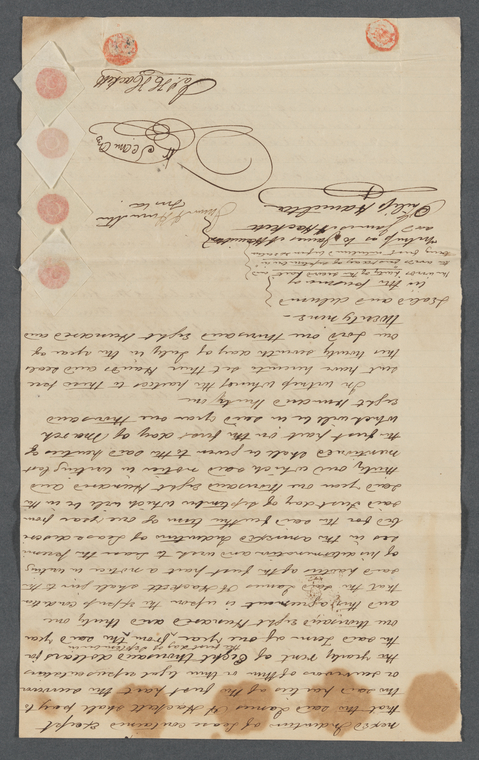 nexed Indenture of lease contained except
that the said James H Hackett shall pay to
the said parties of the first part the survivors
or survivor of them or their legal representatives
the yearly rent of Eight thousand dollars for
the first day of September in
the said Term of one year from the said year
one thousand eight hundred and thirty one
and this agreement is upon the express condition
that the said James H Hackett shall give to the
said parties of the first part a notice in writing
of his determination and wish to lease the premi
ses in the annexed Indenture of Lease descri
bed for the said further term of one year from
said first day of September which will be in the
said year one thousand eight hundred and
thirty one which said notice in writing last
mentioned shall be given to the said parties of
the first part on the first day of March
which will be in said year one thousand
eight hundred and thirty one
In witness whereof the parties to these pre
sent have hereunto set their hands and seals
this twenty seventh day of July in the year of
our Lord one thousand eight hundred and
twenty nine -
Sealed and delivered
in the presence of
Witness as to James A Hamilton
and James H Hackett
Philip Hamilton
James A Hamilton
Jas. H. Hackett